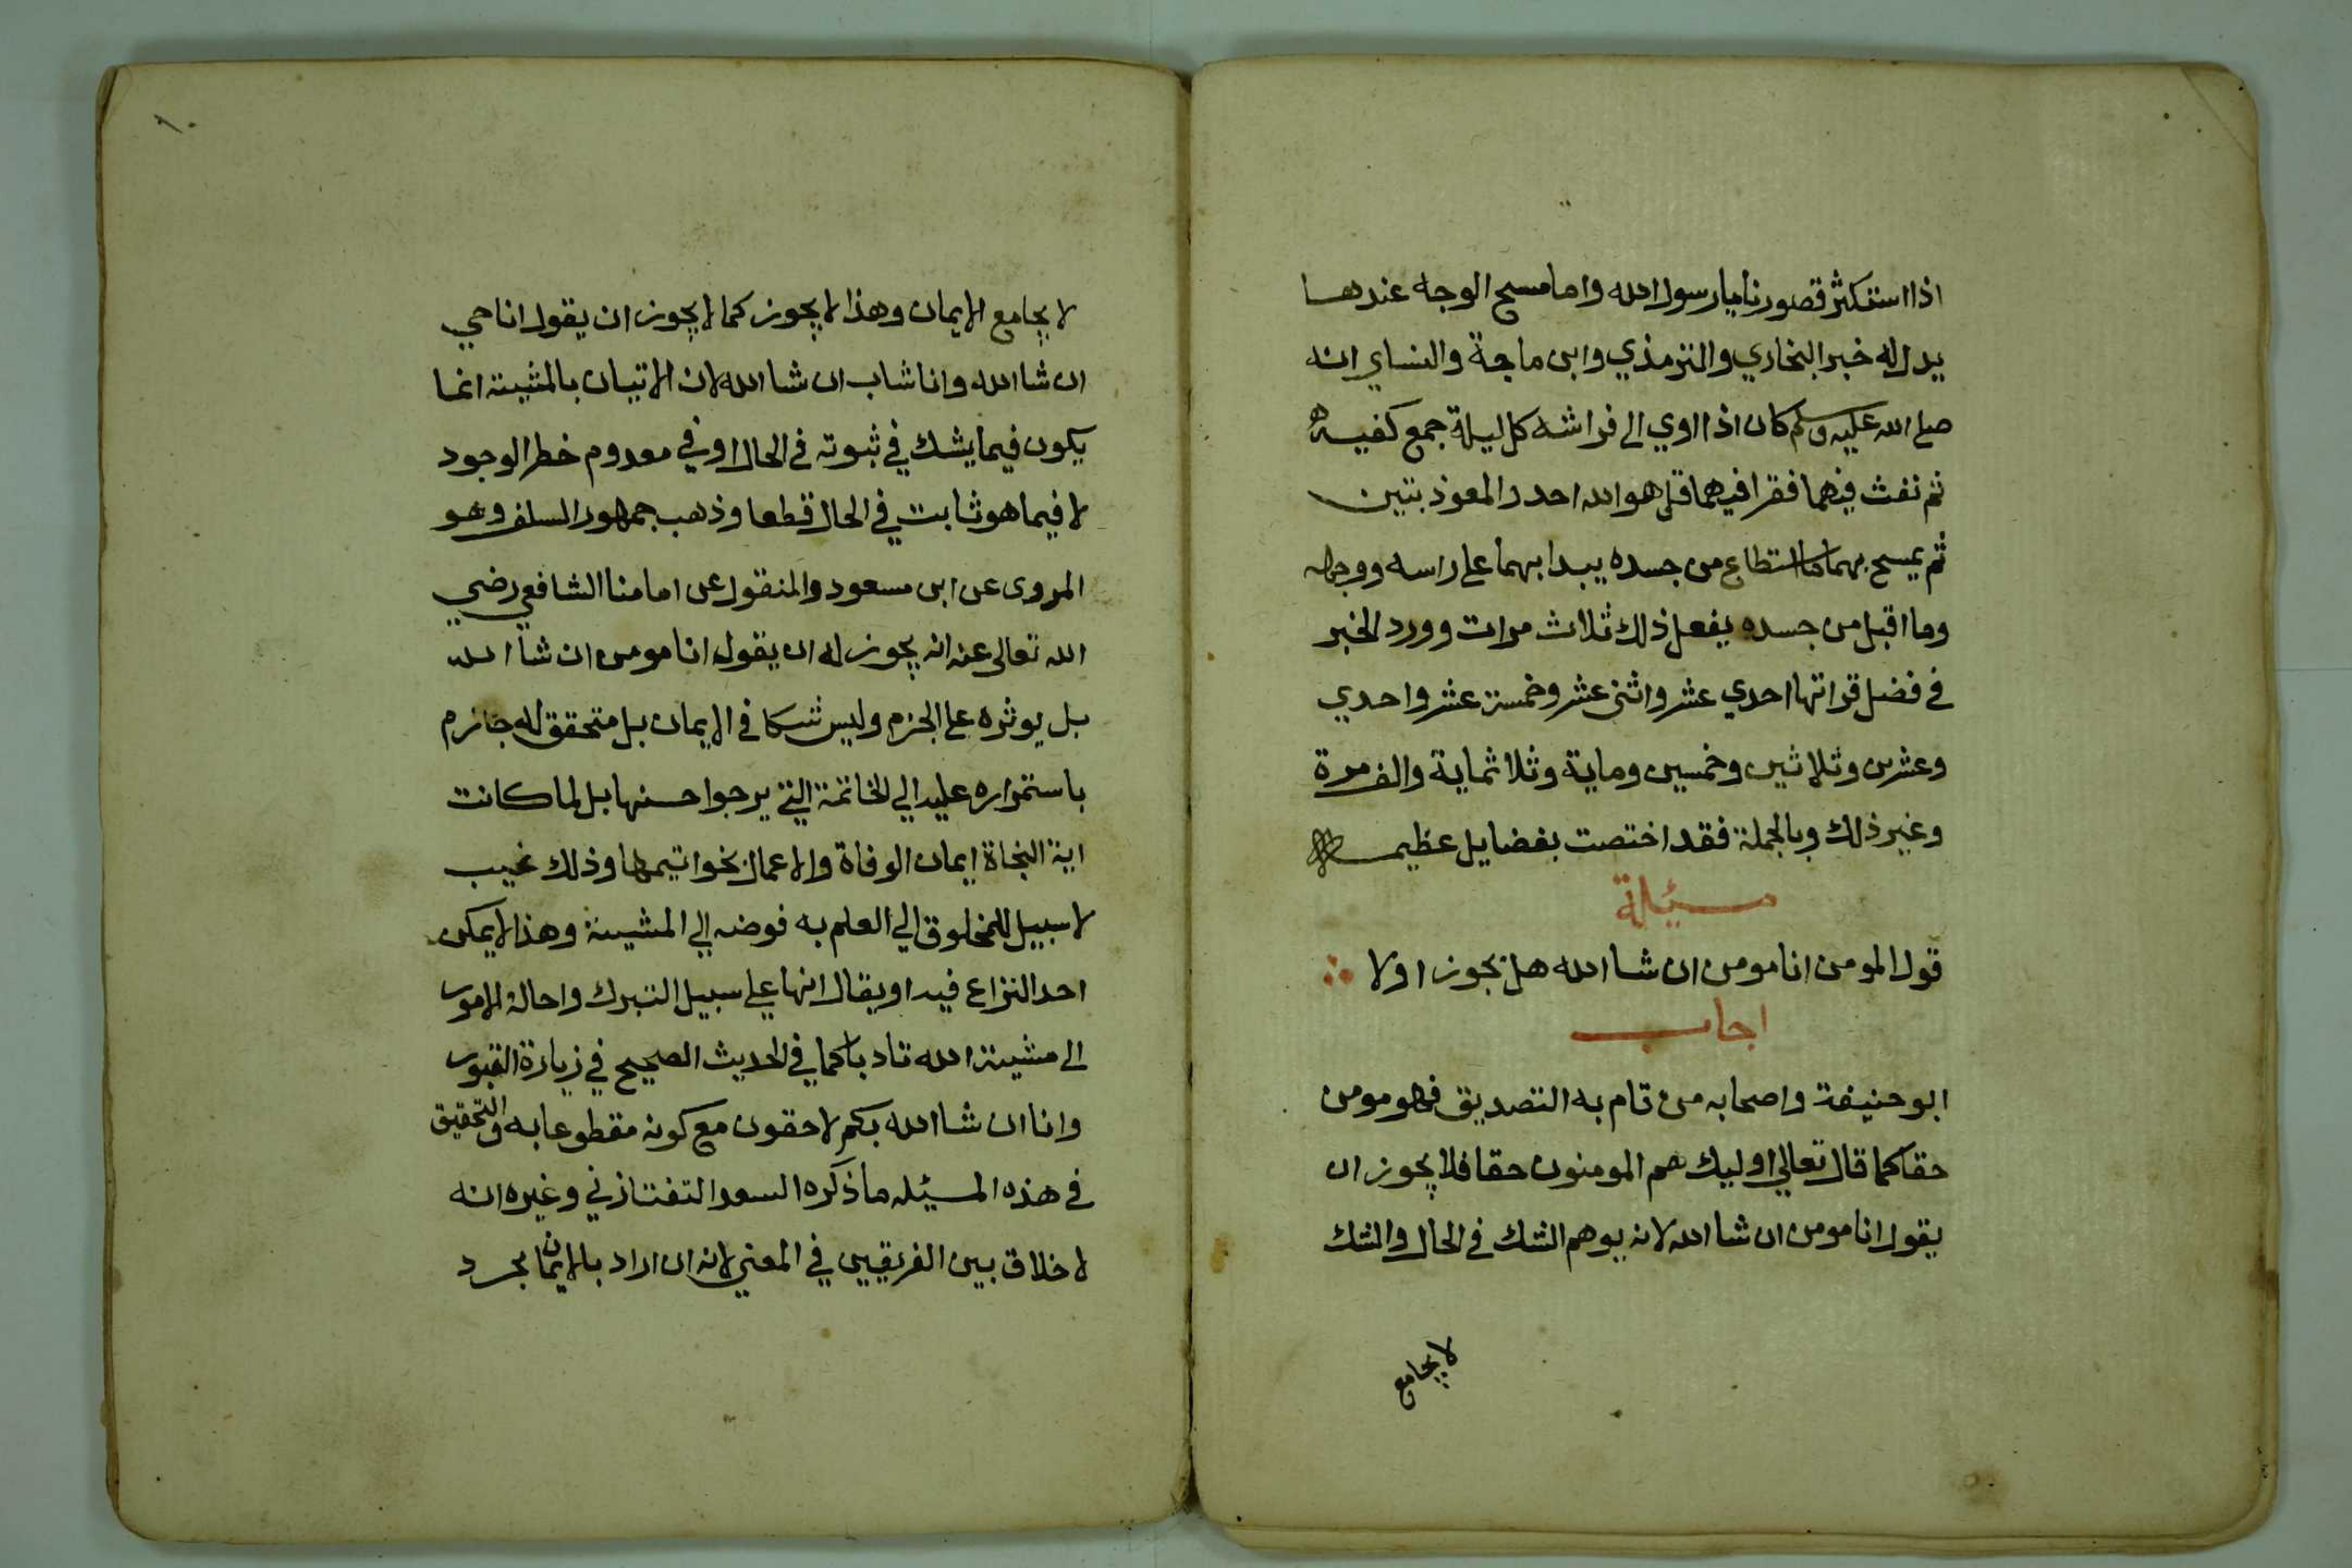 اذا استكثر قصورنا يا رسول الله واما مسح الوجه عندها
يدل له خبر البخاري والترمذي وابن ماجة والنساي انه
صلى الله عليه وسلم كان اذا اوي الى فراشه كل ليلة جمع كفيه
ثم نفث فيهما فقرا فيهما قل هو الله احد والمعوذتين
ثم يمسح بهما ما استطاع من جسده يبدا بهما على راسه ووجهه
وما اقبل من جسده يفعل ذلك ثلاث مرات وورد الخبر
في فضل قراتها احدي عشر واثنى عشر وخمسة عشر واحدي
وعشرين وثلاثين وخمسين وماية وثلاثماية والف مرة
وغير ذلك وبالجملة فقد اختصت بفضايل عظيمه
مسيئلة
قول المومن انا مومن ان شا الله هل يجوز اولا
اجاب
ابو حنيفة واصحابه من تام به التصديق فهو مومن
حقا كما قال تعالي اوليك هم المومنون حقا فلا يجوز ان
يقول انا مومن ان شا الله لانه يوهم الشك في الحال والشك
لا يجامع
لا يجامع الايمان وهذا لا يجوز كما لا يجوز ان يقول انا حي
ان شا الله وانا شاب ان شا الله لان الاتيان بالمشيئة انما
يكون فيما يشك في ثبوته في الحال او في معدوم خطر الوجود
لا فيما هو ثابت في الحال قطعا وذهب جمهور السلف وهو
المروى عن ابن مسعود والمنقول عن امامنا الشافعي رضي
الله تعالى عنه انه يجوز له ان يقول انا مومن ان شا الله
بل يوثره على الجزم وليس شكا في الايمان بل متحقق له جازم
باستمراره عليه الي الخاتمة التي يرجوا حسنها بل لما كانت
اية النجاة ايمان الوفاة والاعمال بخواتيمها وذلك غيب
لا سبيل للمخلوق الي العلم به فوضه الي المشيئة وهذا لا يمكن
احد النزاع فيه او يقال انها علي سبيل التبرك واحالة الامور
الى مشيئة الله تادبا كما في الحديث الصحيح في زيارة القبور
وانا ان شا الله بكم لاحقون مع كونه مقطوعا به والتحقيق
في هذه المسيئله ما ذكره السعد التفتازني وغيره انه
لا خلاق بين الفريقين في المعني لانه ان اراد بالايمان مجرد